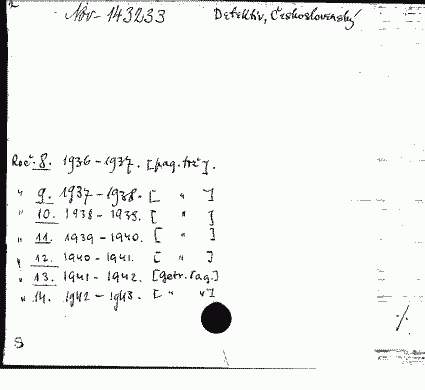 Nov-143233 Detektiv, Československý
Roč. 8. 1936-1937. [pag. trž].
" 9. 1937-1938. [ " ]
" 10. 1938-1939. [ " ]
" 11. 1939-1940. [ " ]
" 12. 1940-1941. [ " ]
" 13. 1941-1942. [getr. Pag.]
" 14. 1942-1943. [ " " ]
./.
S